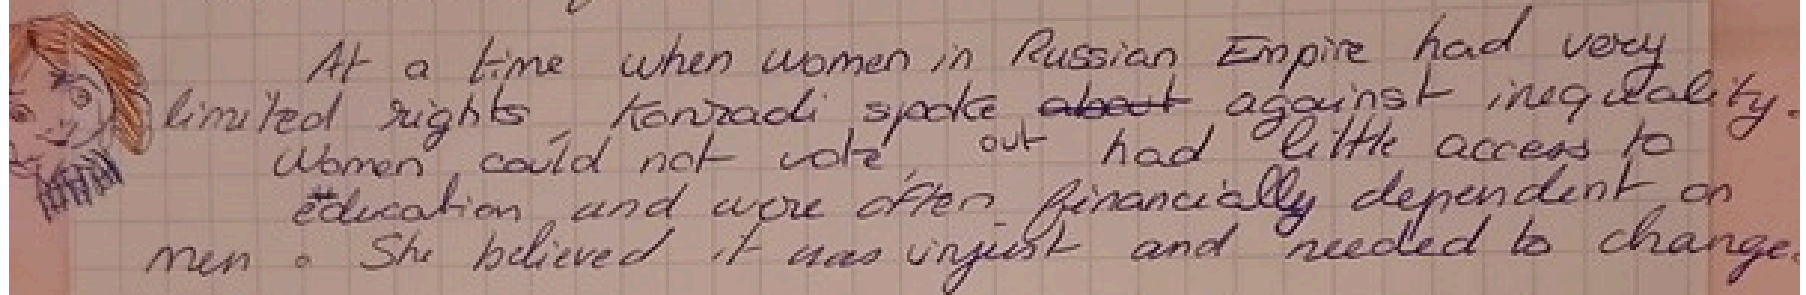 At a time when women in Russian Empire had very
limited rights, Konradi spoke about out against inequality.
Women could not vote, had little access to
education, and were often financially dependent on
men. She believed it was unjust and needed to change.